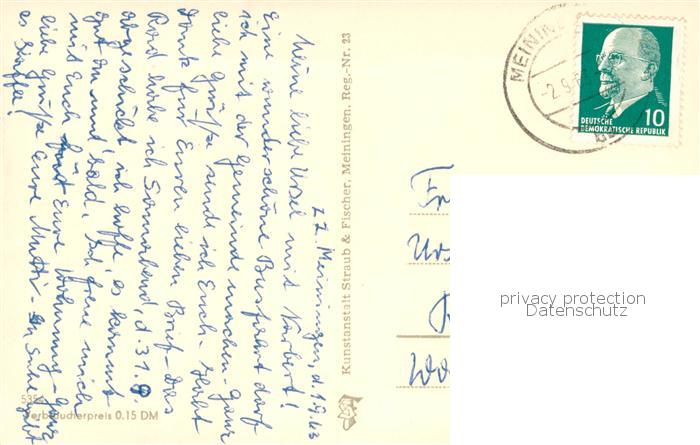 z Z. Meiningen, d. 1.9.63
Meine liebe Ursel mit Norbert!
Eine wunderschöne Busfahrt darf
ich mit der Gemeinde machen. Ganz
liebe Grüße sende ich Euch. Habt
Dank für Euren lieben Brief. Das
Rad habe ich Sonnabend, d. 31.8.
abgeschickt, ich hoffe, es kommt
gut an und bald. Ich freue mich
mit Euch für Eure Wohnung. Ganz
liebe Grüße Eure Mutti.
es
Kunstanstalt Straub & Fischer, Meiningen, Reg.-Nr. 23
Verbraucherpreis 0.15 DM
MEININ
-2.9.6
10
DEUTSCHE
DEMOKRATISCHE REPUBLIK
Fr
Urs
Wo
privacy protection
Datenschutz